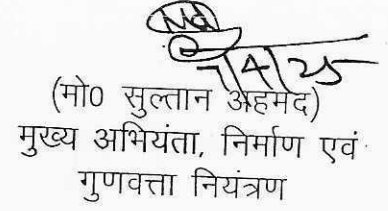 7/4/25
(मो0 सुल्तान अहमद)
मुख्य अभियंता, निर्माण एवं
गुणवत्ता नियंत्रण